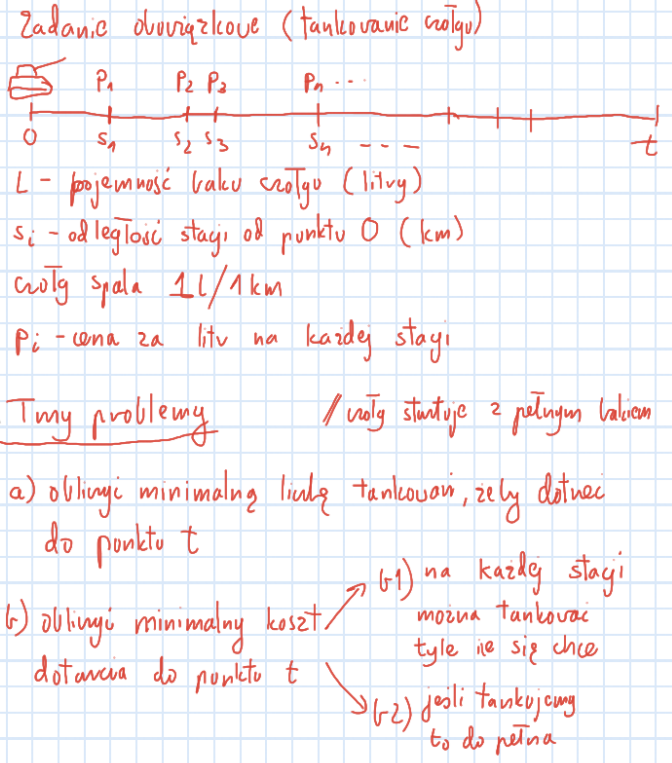 Zadanie obowiązkowe (tankowanie czołgu)
P₁ P₂ P₃ Pₙ ...
0 S₁ S₂ S₃ Sₙ - - - t
L - pojemność baku czołgu (litry)
Sᵢ - odległość stacji od punktu 0 (km)
czołg spala 1l/1km
Pᵢ - cena za litr na każdej stacji
Trzy problemy // czołg startuje z pełnym bakiem
a) obliczyć minimalną liczbę tankowań, żeby dotrzeć
do punktu t
b) obliczyć minimalny koszt
dotarcia do punktu t
b1) na każdej stacji
można tankować
tyle ile się chce
b2) jeśli tankujemy
to do pełna